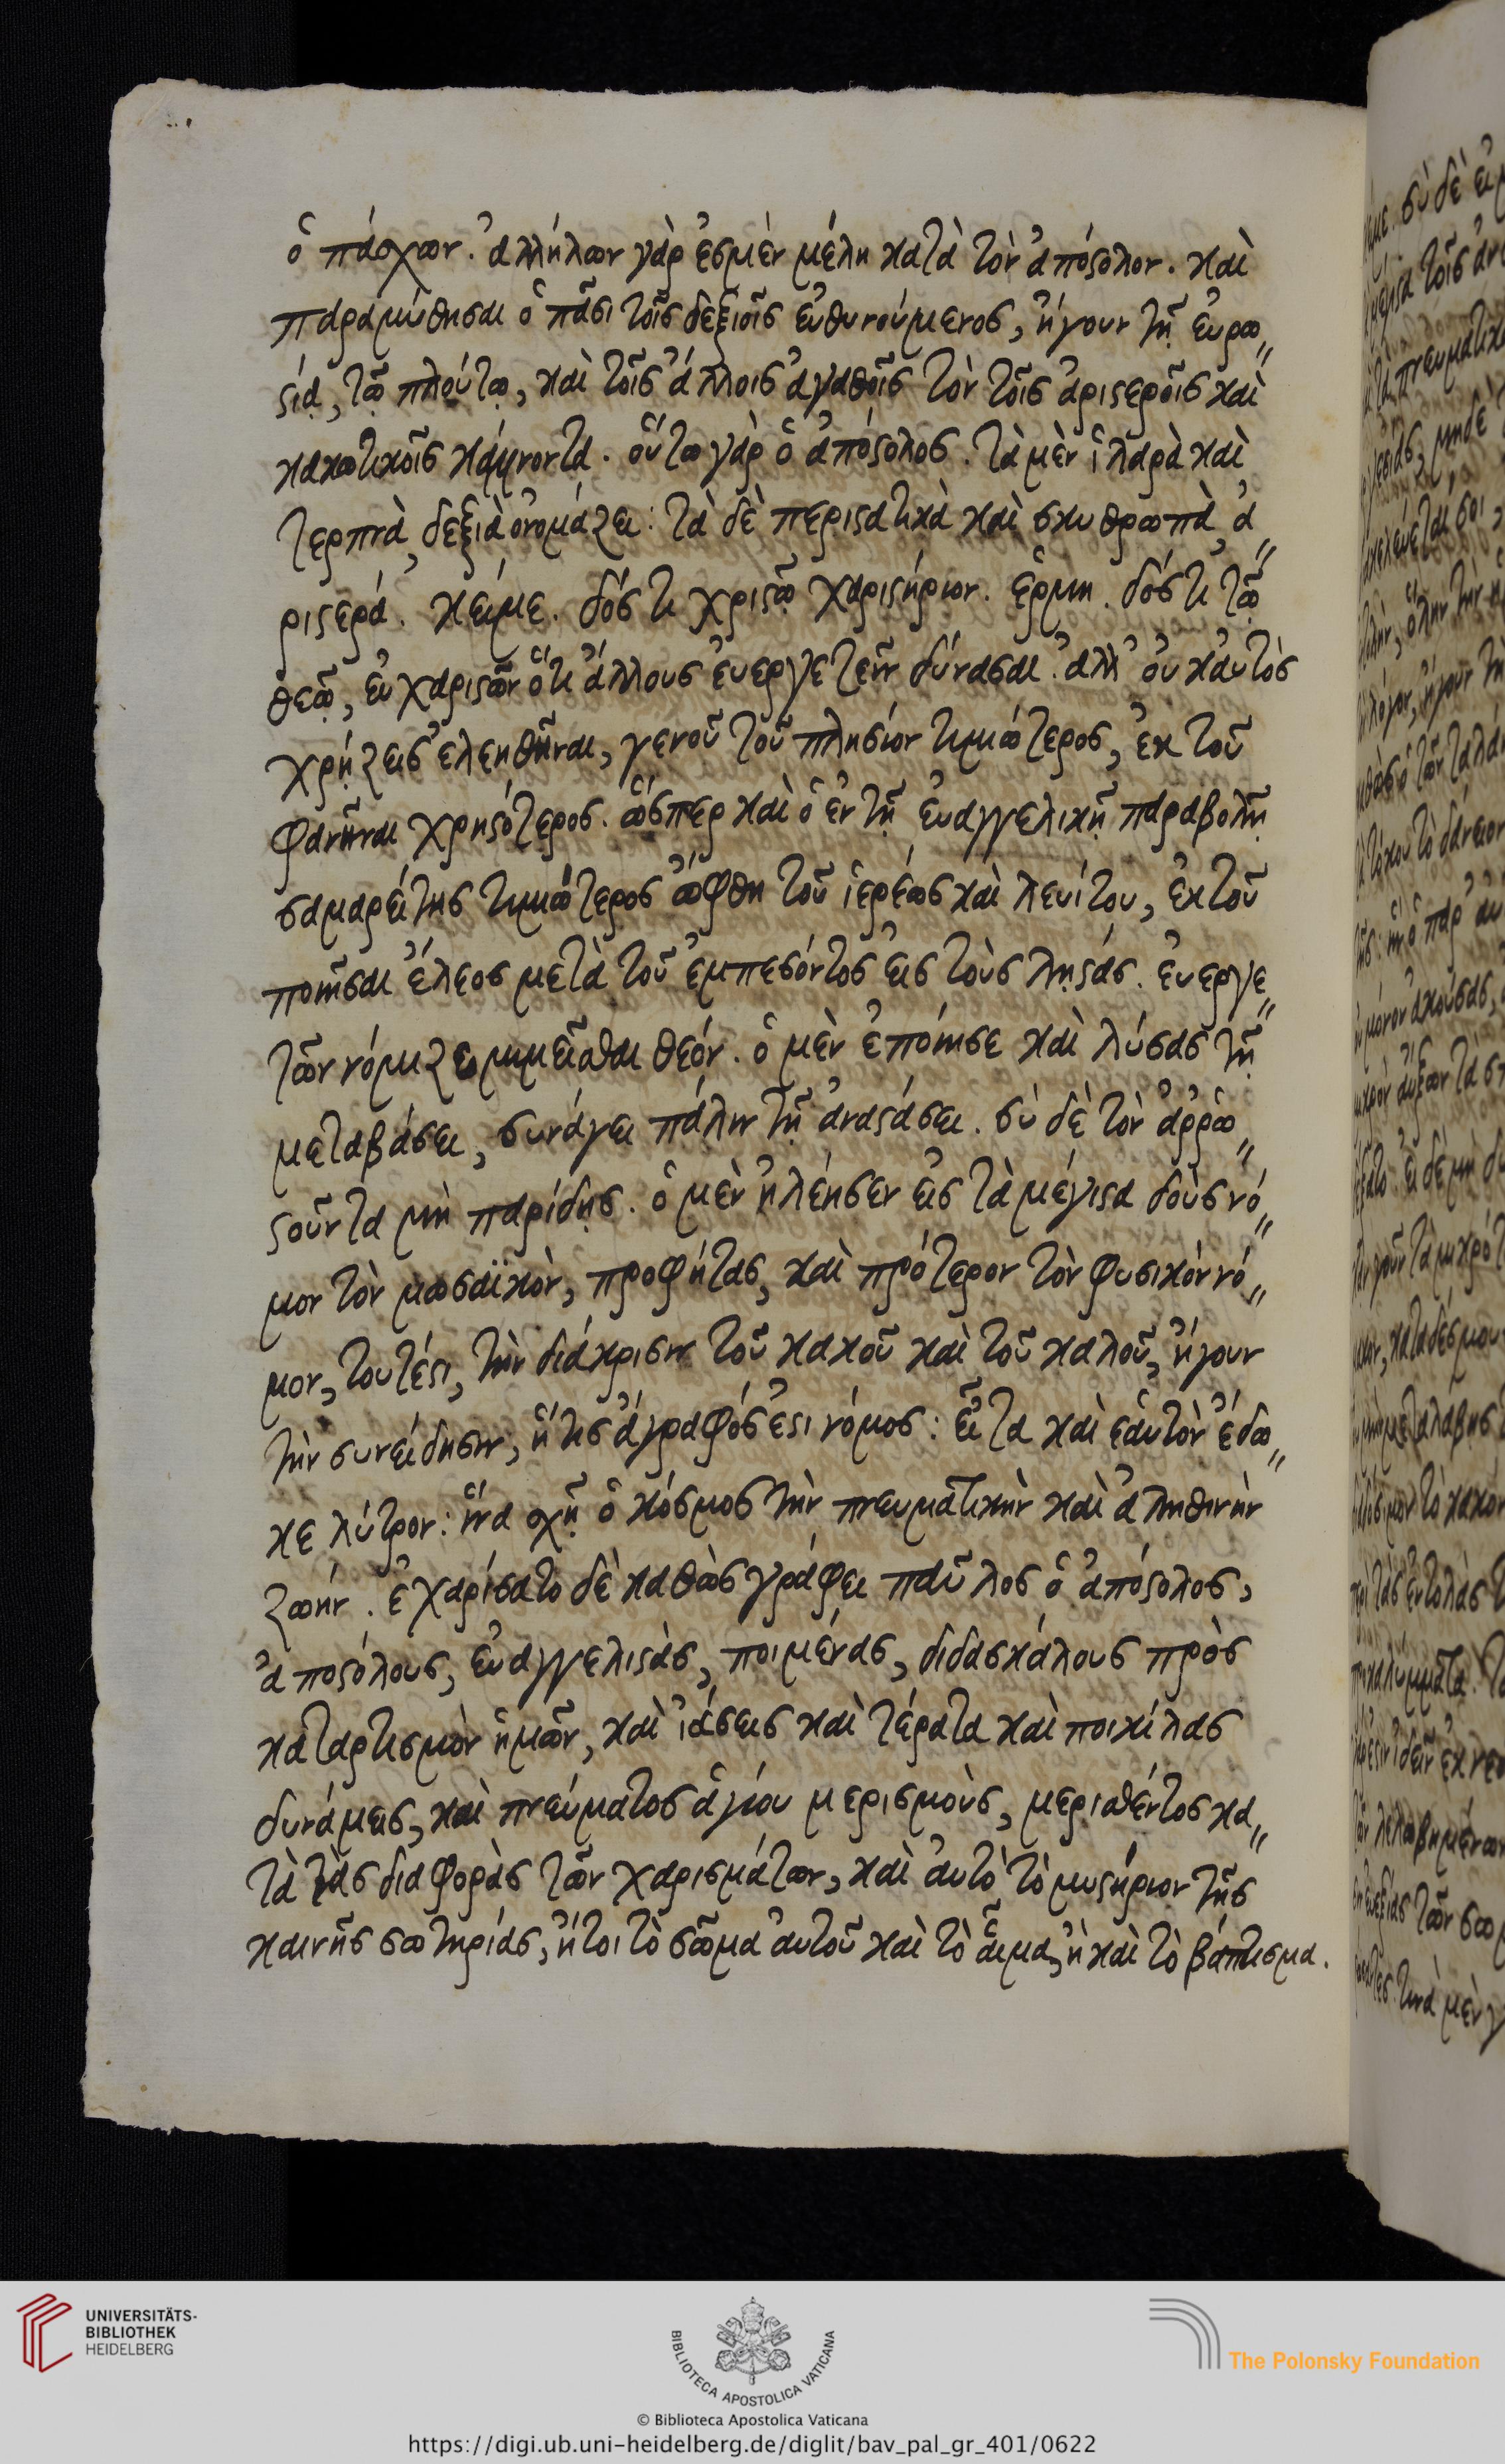 ὁ πάσχων. ἀλλήλων γὰρ ἐσμὲν μέλη κατὰ τὸν ἀπόστολον. καὶ
παραμύθησαι ὁ πᾶσι τοῖς δεξιοῖς εὐθυνούμενος, ἤγουν τῇ εὐρω〃
στίᾳ, τῷ πλούτῳ, καὶ τοῖς ἄλλοις ἀγαθοῖς τὸν τοῖς ἀριστεροῖς καὶ
κακωτικοῖς κάμνοντα. οὕτω γὰρ ὁ ἀπόστολος. τὰ μὲν ἱλαρὰ καὶ
τερπνὰ, δεξιὰ ὀνομάζει: τὰ δὲ περιστατικὰ καὶ σκυθρωπὰ, ἀ〃
ριστερά. κείμε. δός τι χριστῷ χαριστήριον. ἑρμη. δός τι τῷ
θεῷ, εὐχαριστῶν ὅτι ἄλλους ἐυεργετεῖν δύνασαι. ἀλλ' οὐ καὐτὸς
χρῄζεις ἐλεηθῆναι, γενοῦ τοῦ πλησίον τιμιώτερος, ἐκ τοῦ
φανῆναι χρηστότερος. ὥσπερ καὶ ὁ ἐν τῇ ἐυαγγελικῇ παραβολῇ
σαμαρείτης τιμιώτερος ὤφθη τοῦ ἱερέως καὶ λευίτου, ἐκ τοῦ
ποιῆσαι ἔλεος μετὰ τοῦ ἐμπεσόντος εἰς τοὺς λῃστάς. ἐυεργε〃
τῶν νόμιζε μιμεῖσθαι θεόν. ὁ μὲν ἐποίησε καὶ λύσας τῇ
μεταβάσει, συνάγει πάλιν τῇ ἀναστάσει. σὺ δὲ τὸν ἀῤῥω〃
στοῦντα μὴ παρίδῃς. ὁ μὲν ἠλέησεν εἰς τὰ μέγιστα δοὺς νό〃
μον τὸν μωσαϊκὸν, προφήτας, καὶ πρότερον τὸν φυσικόν νό〃
μον, τουτέστι, τὴν διάκρισιν τοῦ κακοῦ καὶ τοῦ καλοῦ, ἤγουν
τὴν συνείδησιν, ἥτις ἄγραφός ἐστι νόμος: εἶτα καὶ ἑαυτὸν ἔδω〃
κε λύτρον: ἵνα σχῇ ὁ κόσμος τὴν πνευματικὴν καὶ ἀληθινὴν
ζωήν. ἐχαρίσατο δὲ καθὼς γράφει παῦλος ὁ ἀπόστολος,
ἀποστόλους, εὐαγγελιστὰς, ποιμένας, διδασκάλους πρὸς
καταρτισμὸν ἡμῶν, καὶ ἰάσεις καὶ τέρατα καὶ ποικίλας
δυνάμεις, καὶ πνεύματος ἁγίου μερισμοὺς, μερισθέντος κα〃
τὰ τὰς διαφορὰς τῶν χαρισμάτων, καὶ ἀυτὸ τὸ μυστήριον τῆς
καινῆς σωτηρίας, ἤτοι τὸ σῶμα ἀυτοῦ καὶ τὸ αἷμα, ἢ καὶ τὸ βάπτισμα.
UNIVERSITÄTS-
BIBLIOTHEK
HEIDELBERG
BIBLIOTECA APOSTOLICA VATICANA
© Biblioteca Apostolica Vaticana
The Polonsky Foundation
https://digi.ub.uni-heidelberg.de/diglit/bav_pal_gr_401/0622